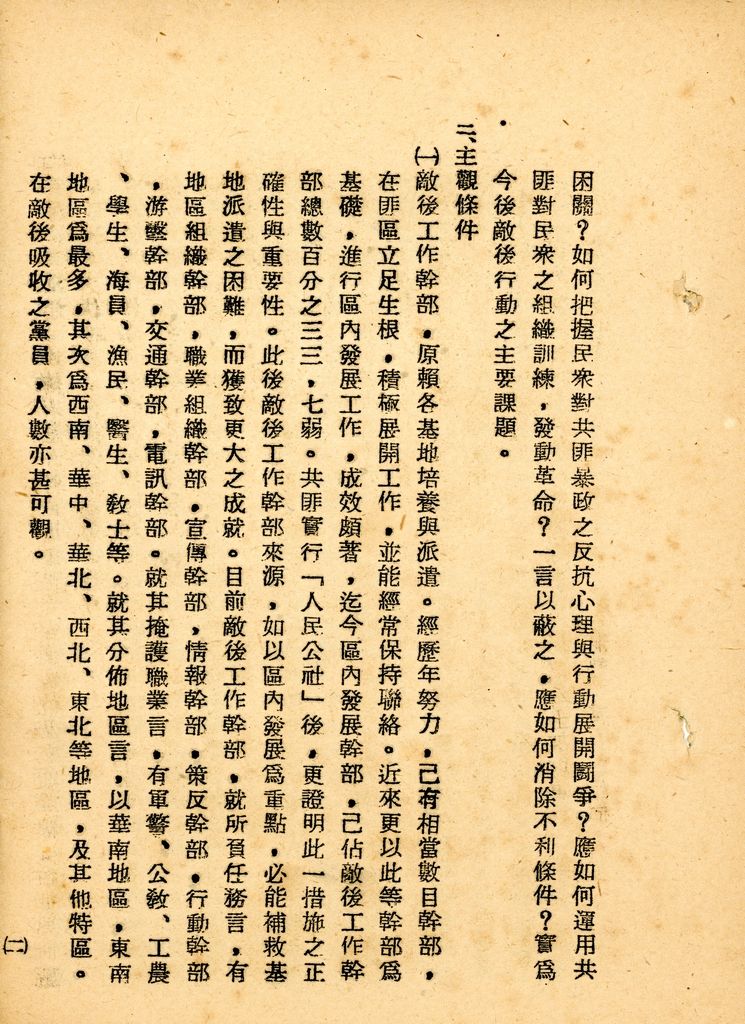 困關？如何把握民衆對共匪暴政之反抗心理與行動展開鬪爭？應如何運用共
匪對民衆之組織訓練，發動革命？一言以蔽之，應如何消除不利條件？實爲
今後敵後行動之主要課題。
二、主觀條件
㈠敵後工作幹部，原賴各基地培養與派遣。經歷年努力，已有相當數目幹部，
在匪區立足生根，積極展開工作，並能經常保持聯絡。近來更以此等幹部爲
基礎，進行區內發展工作，成效頗著，迄今區內發展幹部，已佔敵後工作幹
部總數百分之三三，七弱。共匪實行「人民公社」後，更證明此一措施之正
確性與重要性。此後敵後工作幹部來源，如以區內發展爲重點，必能補救基
地派遣之困難，而獲致更大之成就。目前敵後工作幹部，就所負任務言，有
地區組織幹部，職業組織幹部，宣傳幹部，情報幹部，策反幹部，行動幹部
，游擊幹部，交通幹部，電訊幹部。就其掩護職業言，有軍警、公教、工農
、學生、海員、漁民、醫生、教士等。就其分佈地區言，以華南地區，東南
地區爲最多，其次爲西南、華中、華北、西北、東北等地區，及其他特區。
在敵後吸收之黨員，人數亦甚可觀。
㈡